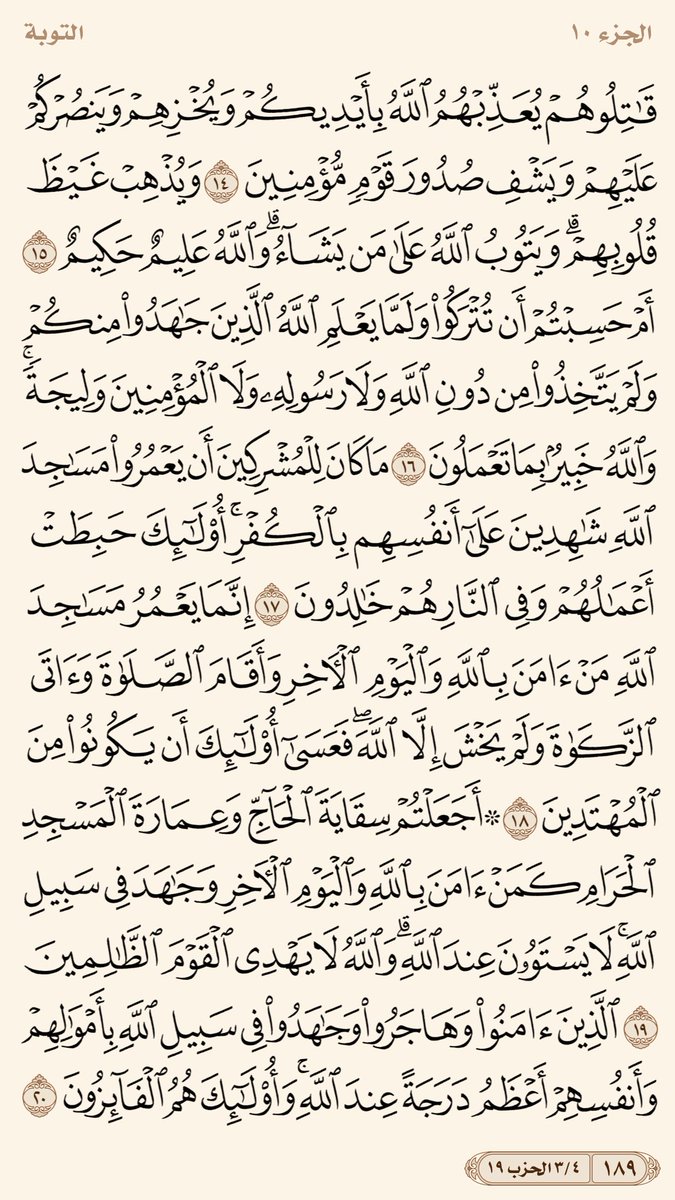 الجزء ١٠
التوبة
قَٰتِلُوهُمۡ يُعَذِّبۡهُمُ ٱللَّهُ بِأَيۡدِيكُمۡ وَيُخۡزِهِمۡ وَيَنصُرۡكُمۡ
عَلَيۡهِمۡ وَيَشۡفِ صُدُورَ قَوۡمٖ مُّؤۡمِنِينَ ١٤ وَيُذۡهِبۡ غَيۡظَ
قُلُوبِهِمۡۗ وَيَتُوبُ ٱللَّهُ عَلَىٰ مَن يَشَآءُۗ وَٱللَّهُ عَلِيمٌ حَكِيمٌ ١٥
أَمۡ حَسِبۡتُمۡ أَن تُتۡرَكُواْ وَلَمَّا يَعۡلَمِ ٱللَّهُ ٱلَّذِينَ جَٰهَدُواْ مِنكُمۡ
وَلَمۡ يَتَّخِذُواْ مِن دُونِ ٱللَّهِ وَلَا رَسُولِهِۦ وَلَا ٱلۡمُؤۡمِنِينَ وَلِيجَةٗۚ
وَٱللَّهُ خَبِيرُۢ بِمَا تَعۡمَلُونَ ١٦ مَا كَانَ لِلۡمُشۡرِكِينَ أَن يَعۡمُرُواْ مَسَٰجِدَ
ٱللَّهِ شَٰهِدِينَ عَلَىٰٓ أَنفُسِهِم بِٱلۡكُفۡرِۚ أُوْلَٰٓئِكَ حَبِطَتۡ
أَعۡمَٰلُهُمۡ وَفِي ٱلنَّارِ هُمۡ خَٰلِدُونَ ١٧ إِنَّمَا يَعۡمُرُ مَسَٰجِدَ
ٱللَّهِ مَنۡ ءَامَنَ بِٱللَّهِ وَٱلۡيَوۡمِ ٱلۡأٓخِرِ وَأَقَامَ ٱلصَّلَوٰةَ وَءَاتَى
ٱلزَّكَوٰةَ وَلَمۡ يَخۡشَ إِلَّا ٱللَّهَۖ فَعَسَىٰٓ أُوْلَٰٓئِكَ أَن يَكُونُواْ مِنَ
ٱلۡمُهۡتَدِينَ ١٨ ۞ أَجَعَلۡتُمۡ سِقَايَةَ ٱلۡحَآجِّ وَعِمَارَةَ ٱلۡمَسۡجِدِ
ٱلۡحَرَامِ كَمَنۡ ءَامَنَ بِٱللَّهِ وَٱلۡيَوۡمِ ٱلۡأٓخِرِ وَجَٰهَدَ فِي سَبِيلِ
ٱللَّهِۚ لَا يَسۡتَوُۥنَ عِندَ ٱللَّهِۗ وَٱللَّهُ لَا يَهۡدِي ٱلۡقَوۡمَ ٱلظَّٰلِمِينَ
١٩ ٱلَّذِينَ ءَامَنُواْ وَهَاجَرُواْ وَجَٰهَدُواْ فِي سَبِيلِ ٱللَّهِ بِأَمۡوَٰلِهِمۡ
وَأَنفُسِهِمۡ أَعۡظَمُ دَرَجَةً عِندَ ٱللَّهِۚ وَأُوْلَٰٓئِكَ هُمُ ٱلۡفَآئِزُونَ ٢٠
١٨٩
٣/٤ الحزب ١٩